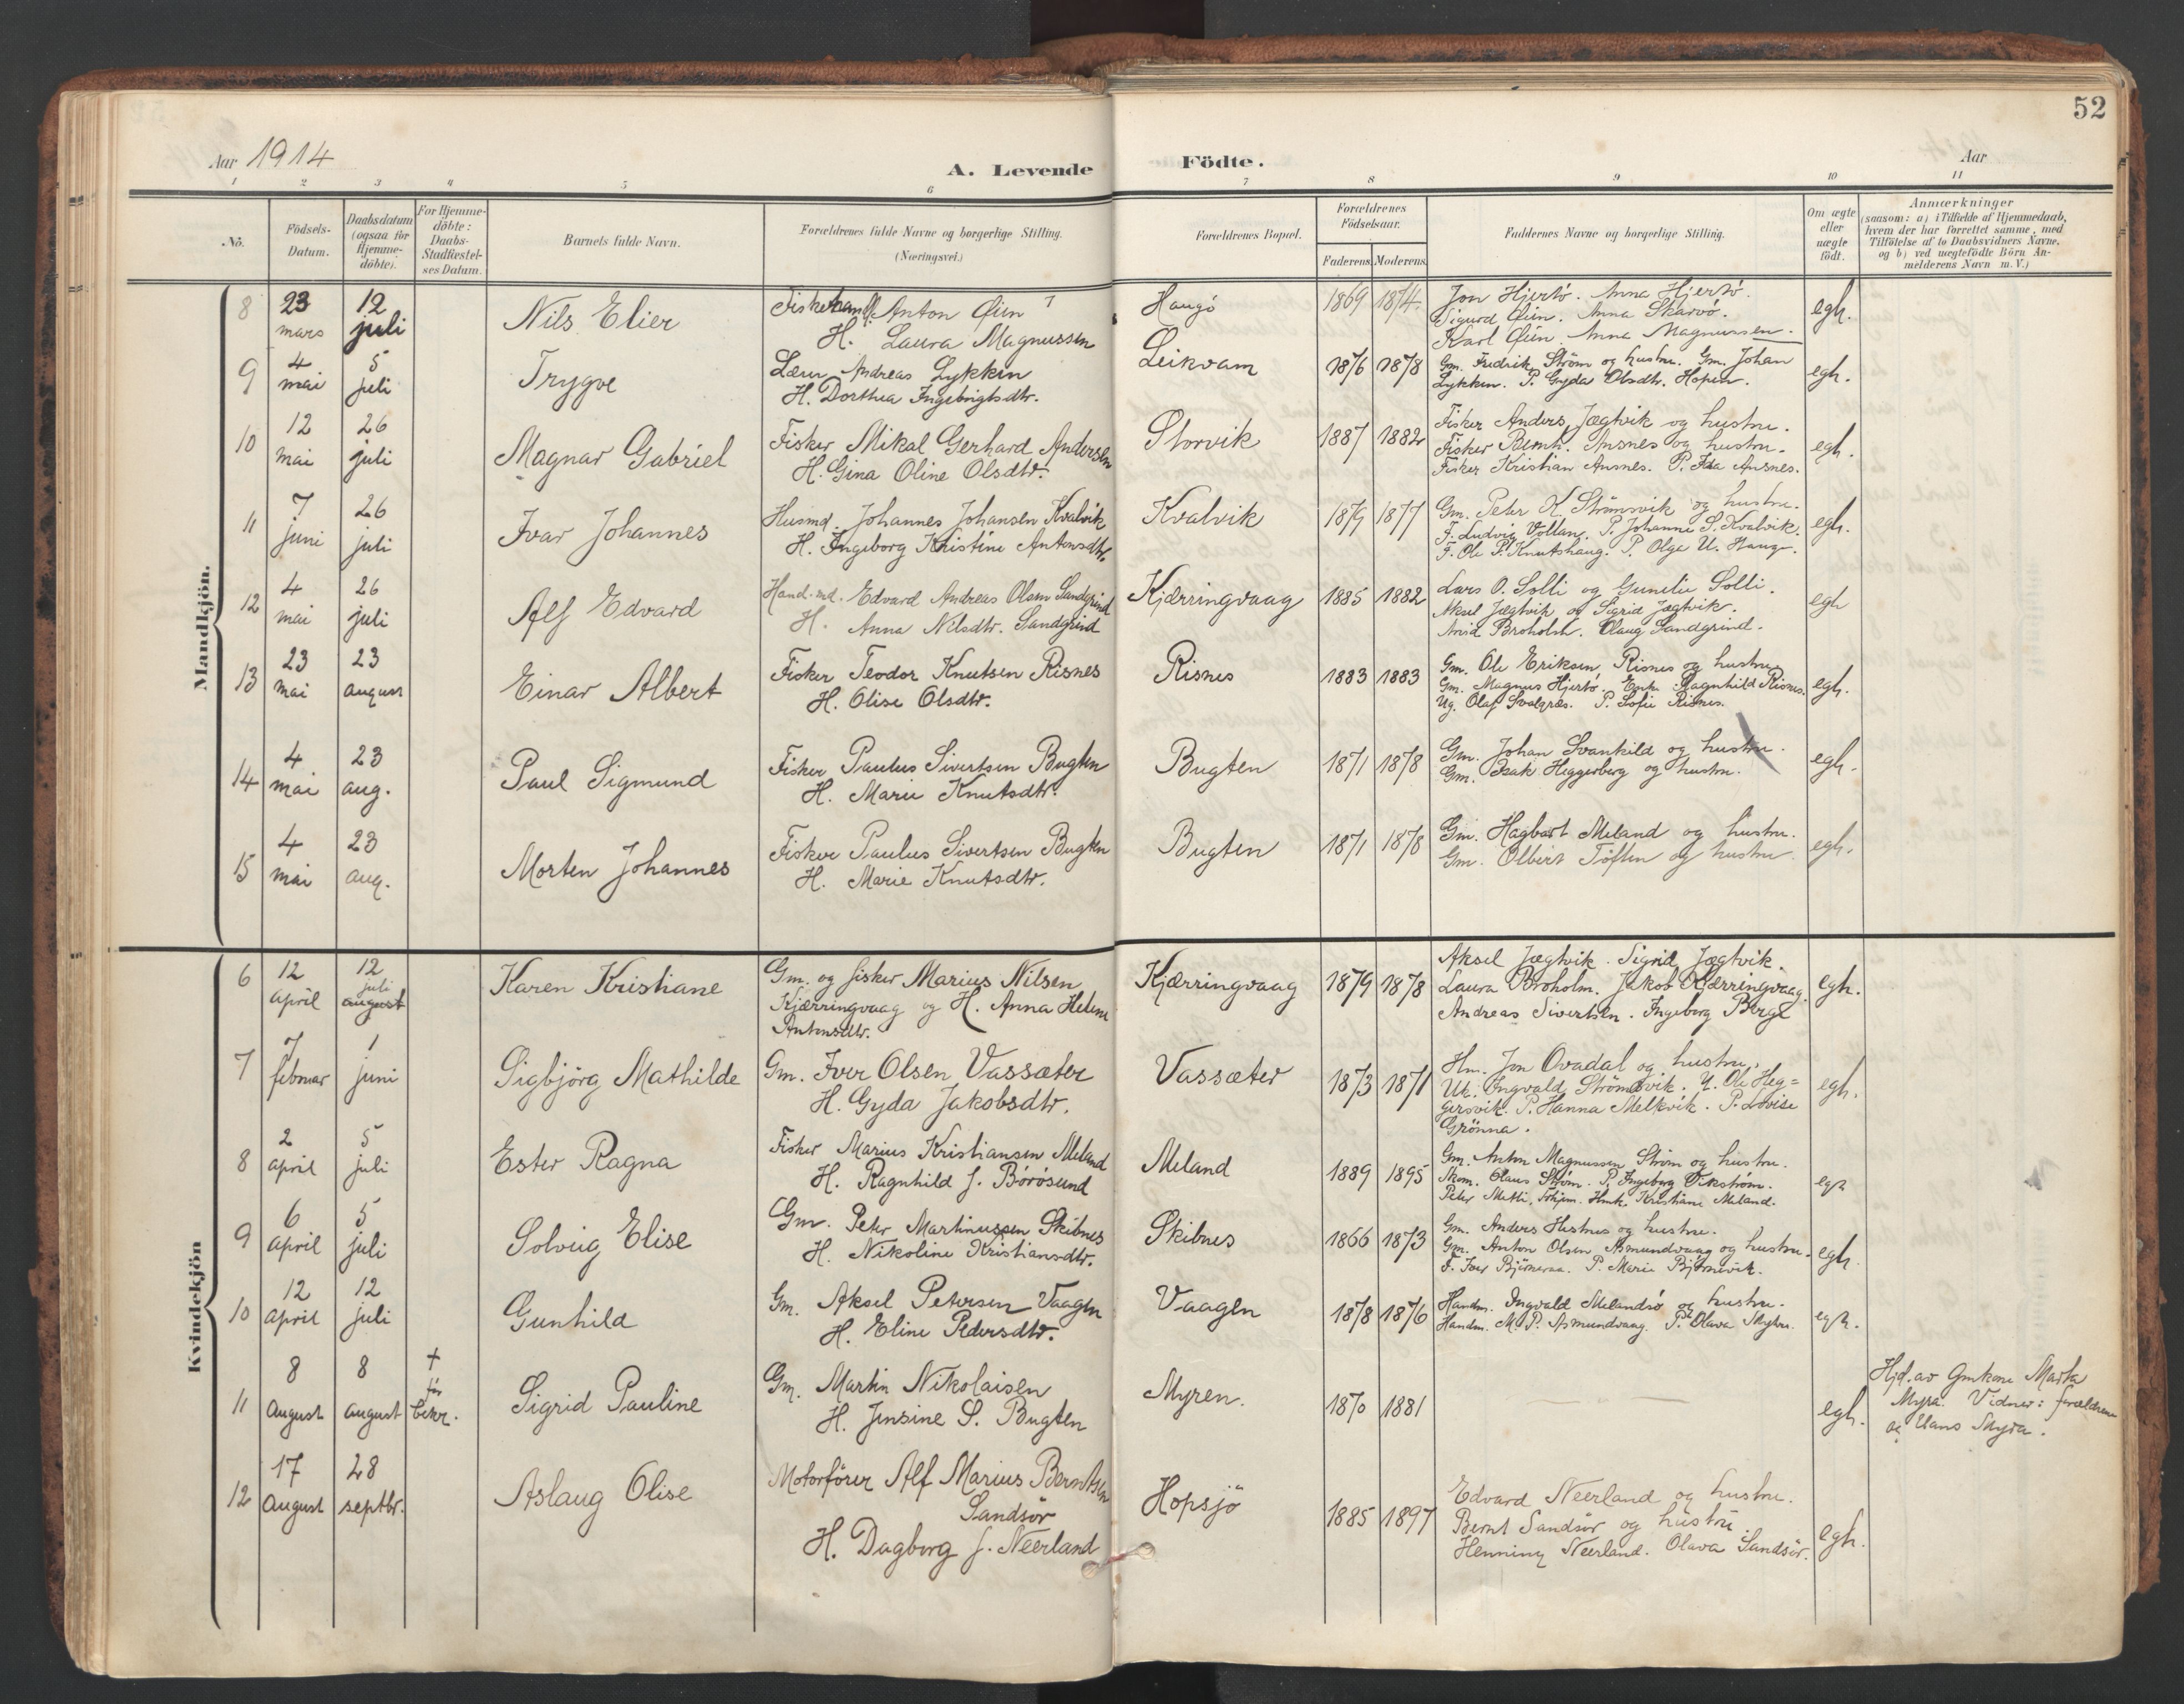 52
Aar 1914
A. Levende
Födte.
Aar
1 2 3 4 5 6 7 8 9 10 11
No.
Födsels-
Datum.
Daabsdatum
(ogsaa for
Hjemme-
döbte).
For Hjemme-
döbte:
Daabs-
Stadfæstel-
ses Datum.
Barnets fulde Navn.
Forældrenes fulde Navne og borgerlige Stilling.
(Næringsvei.)
Forældrenes Bopæl.
Forældrenes
Födselsaar.
Faderens. Moderens.
Faddernes Navne og borgerlige Stilling.
Om ægte
eller
uægte
födt.
Anmærkninger
(saasom: a) i Tilfælde af Hjemmedaab,
hvem der har forrettet samme, med
Tilföielse af to Daabsvidners Navne.
og b) ved uægtefödte Börn An-
melderens Navn m. V.)
Mandkjön.
8
23
mars
12
juli
Nils Elier
Anton Øien
H. Laura Magnussen
Haugö
1869 1874.
Jon Hjertö. Anna Hjertö.
Sigurd Øien. Anna Skarvö.
Karl Øien. Anna Magnussen.
egh.
9
4
mai
5
juli
Trygve
Lærer Andreas Lykken
H. Dorthea Ingebrigtsdtr.
Leikvam
1876 1878
Gm. Fredrik Ström og hustru. Gm. Johan
Lykken. P. Gyda Olsdtr. Hopen.
egh.
10
12
mai
26
juli
Magnar Gabriel
Fisker Mikal Gerhard Andersen
H. Gina Oline Olsdtr.
Storvik
1887 1882
Fisker Anders Jægtvik og hustru.
Fisker Bernh. Ansnes og hustru.
Fisker Kristian Ansnes. P. Ida Ansnes.
egh.
11
7
juni
26
juli
Ivar Johannes
Husmd. Johannes Johansen Kvalvik
H. Ingeborg Kristine Antonsdtr.
Kvalvik
1879 1877
Gm. Peter K. Strömsvik og hustru.
F. Ludvig Vollan. P. Johanne S. Kvalvik.
F. Ole P. Knutshaug. P. Olga U. Haug.
egh.
12
4
mai
26
juli
Alf Edvard
Hand.md. Edvard Andreas Olsen Sandgrind
H. Anna Nilsdtr. Sandgrind
Kjærringvaag
1885 1882
Lars O. Solli og Gunelie Solli.
Aksel Jægtvik og Sigrid Jægtvik.
Arvid Broholm. Olaug Sandgrind.
egh
13
23
mai
23
august
Einar Albert
Fisker Teodor Knutsen Risnes
H. Olise Olsdtr.
Risnes
1883 1883
Gm. Ole Eriksen Risnes og hustru.
Gm. Magnus Hjertö. Enke Ragnhild Risnes.
Ug. Olaf Svalgræs. P. Sofie Risnes.
egh.
14
4
mai
23
aug.
Paul Sigmund
Fisker Paulus Sivertsen Bugten
H. Marie Knutsdtr.
Bugten
1871 1878
Gm. Johan Svankild og hustru.
Gm. Isak Heggerberg og hustru.
egh.
15
4
mai
23
aug.
Morten Johannes
Fisker Paulus Sivertsen Bugten
H. Marie Knutsdtr.
Bugten
1871 1878
Gm. Hagbart Meland og hustru.
Gm. Olbert Töften og hustru.
egh.
Kvindekjön
6
12
april
12
juli
august
Karen Kristiane
Gm. og fisker Marius Nilsen
Kjærringvaag og H. Anna Helene
Antonsdtr.
Kjærringvaag
1879 1878
Aksel Jægtvik. Sigrid Jægtvik.
Laura Broholm. Jakob Kjærringvaag.
Andreas Sivertsen. Ingeborg Berge
egh.
7
7
februar
1
juni
Sigbjörg Mathilde
Gm. Iver Olsen Vassæter
H. Gyda Jakobsdtr.
Vassæter
1873 1871
Hm. Jon Ovadal og hustru.
Uk. Ingvald Strömsvik. U. Ole Heg=
gersvik. P. Hanna Melkvik. P. Lovise
Grönna.
egh.
8
2
april
5
juli
Ester Ragna
Fisker Marius Kristiansen Meland
H. Ragnhild f. Börösund
Meland
1889 1895
Gm. Anton Magnussen Ström og hustru.
Skom. Olaus Ström. P. Ingeborg Ekström.
Peter Kristiane Meland.
egh
9
6
april
5
juli
Solveig Elise
Gm. Peter Martinussen Skibnes
H. Nikoline Kristiansdtr.
Skibnes
1866 1873
Gm. Anders Hestnes og hustru.
Gm. Anton Olsen Asmundvaag og hustru.
F. Iver Björneraa. P. Marie Björnevik.
egh.
10
12
april
12
juli
Gunhild
Gm. Aksel Petersen Vaagen
H. Eline Pedersdtr.
Vaagen
1878 1876
Handm. Ingvald Melandsö og hustru.
Handm. M. P. Asmundvaag. P. Olava
egh.
11
8
august
8
august
†
før
bekr.
Sigrid Pauline
Gm. Martin Nikolaisen
H. Jensine S. Bugten
Myren.
1870 1881
egh.
Hjd. av Gmkone Marta
Myra. Vidner: forældrene
og Hans Myra.
12
17
august
28
septbr.
Aslaug Olise
Motorförer Alf Marius Berntsen
Sandsör
H. Dagborg f. Neerland
Hopsjö
1885 1897
Edvard Neerland og hustru.
Bernt Sandsör og hustru
Henning Neerland. Olava Sandsör.
egh.